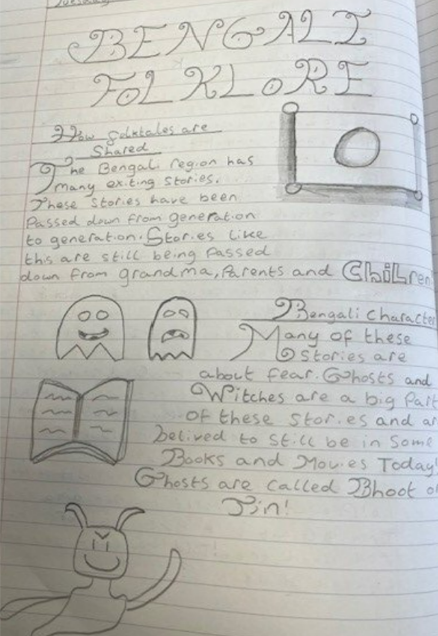 Tuesday
BENGALI
FOLKLORE
How folktales are
Shared
The Bengali region has
many exiting stories.
These stories have been
Passed down from generation
to generation. Stories like
this are still being Passed
down from grandma, Parents and Chilren
Bengali Character
Many of these
stories are
about fear. Ghosts and
Witches are a big Part
of these stories and ar
belived to still be in some
Books and Movies Today!
Ghosts are called Bhoot o
Jin!